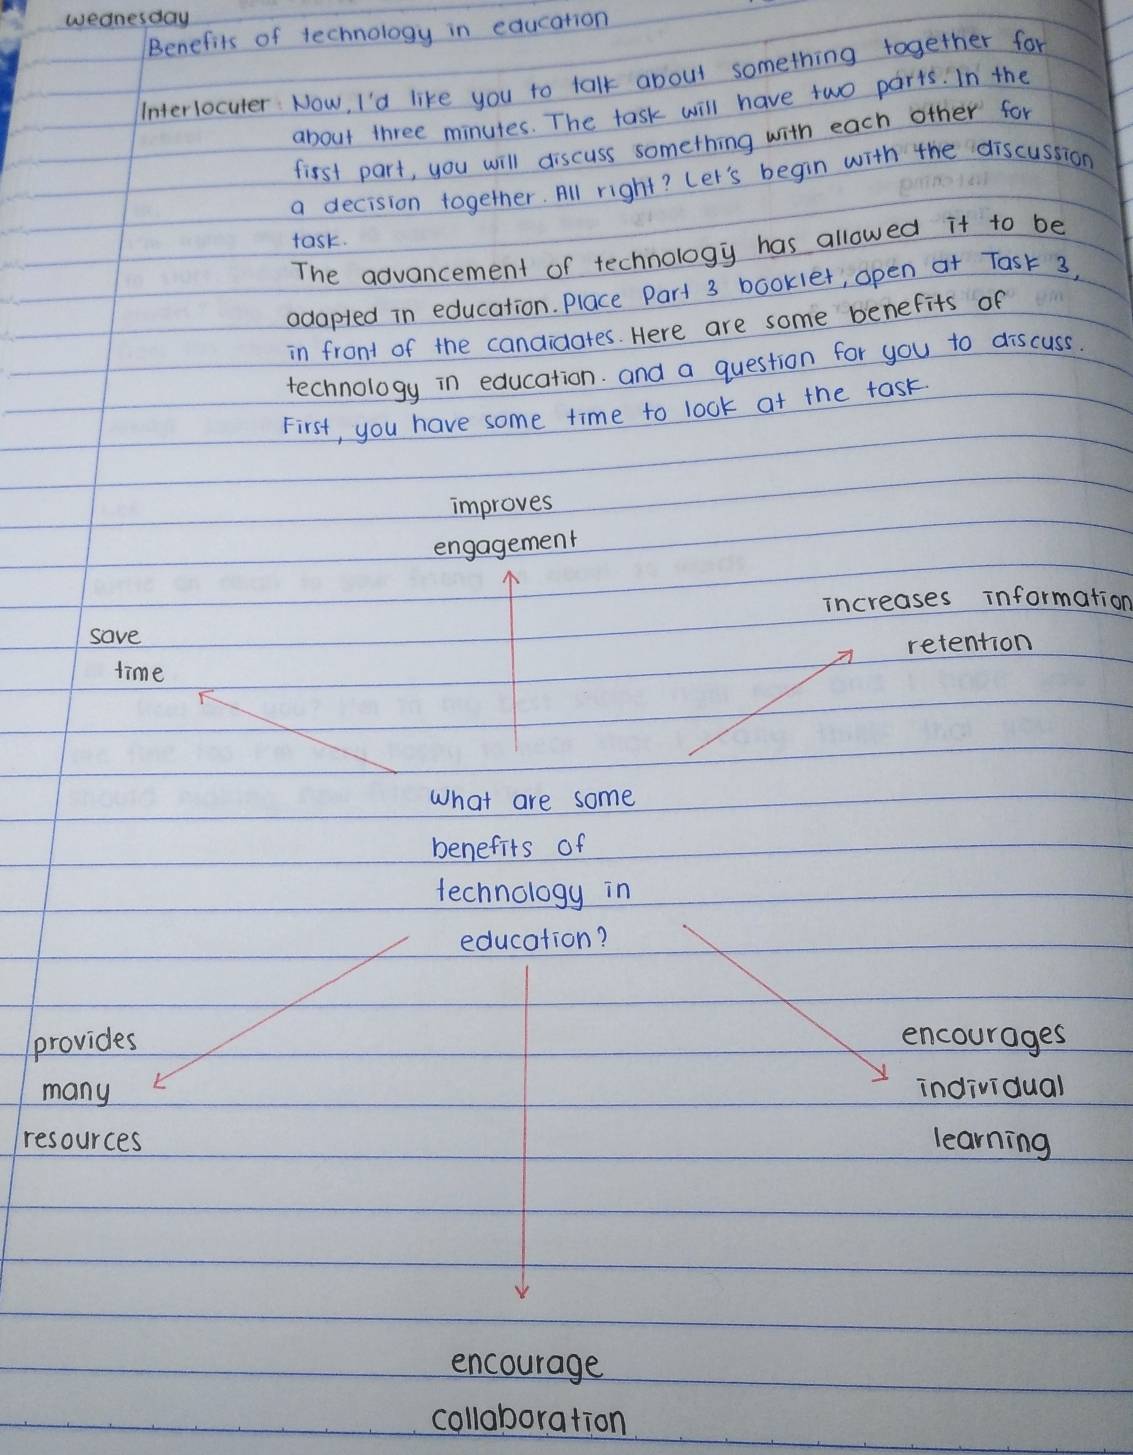 wednesday
Benefits of technology in education
Interlocuter: Now, I'd like you to talk about something together for
about three minutes. The task will have two parts. In the
first part, you will discuss something with each other for
a decision together. All right? Let's begin with the discussion
task.
The advancement of technology has allowed it to be
adapted in education. Place Part 3 booklet, open at Task 3,
in front of the candidates. Here are some benefits of
technology in education. and a question for you to discuss.
First, you have some time to look at the task.
improves
engagement
increases information
retention
save
time
what are some
benefits of
technology in
education?
provides
many
resources
encourages
individual
learning
encourage
collaboration